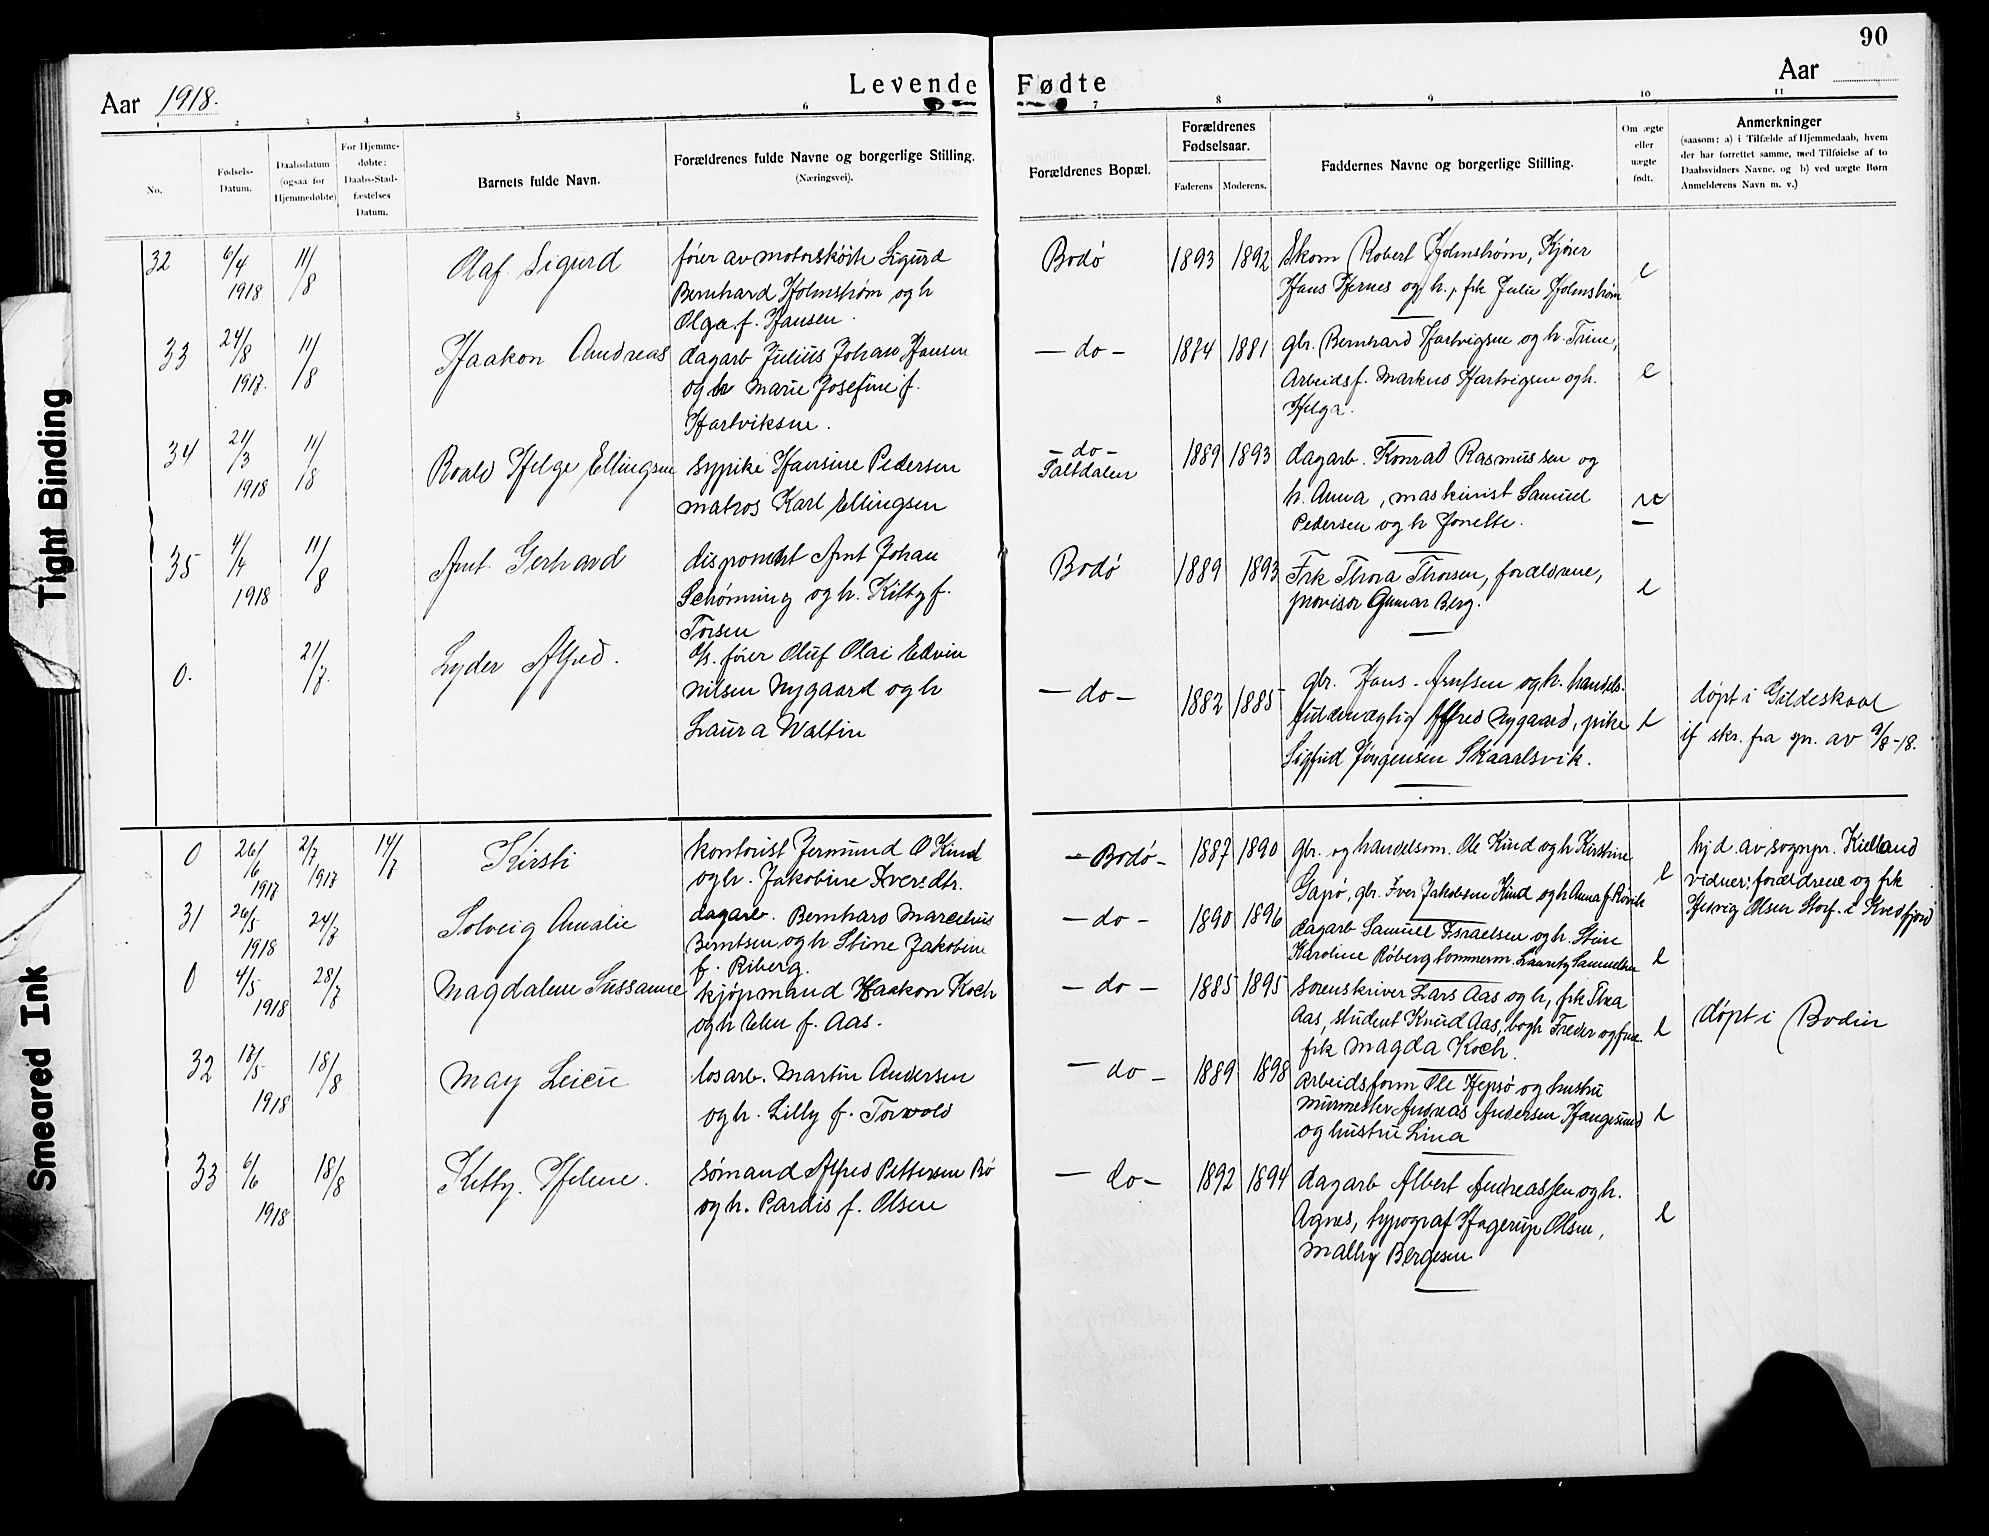 90
Levende Fødte
Aar 1918.
Aar
1 2 3 4 5 6 7 8 9 10 11
No.
Fødsels-
Datum.
Daabsdatum
(ogsaa for
Hjemmedøbte)
For Hjemme-
døbte:
Daabs-Stad-
fæstelses
Datum.
Barnets fulde Navn.
Forældrenes fulde Navne og borgerlige Stilling.
(Næringsvei).
Forældrenes Bopæl.
Forældrenes
Fødselsaar.
Faderens
Moderens.
Faddernes Navne og borgerlige Stilling.
Om ægte
eller
uægte
født.
Anmerkninger
(saasom: a) i Tilfælde af Hjemmedaab, hvem
der har forrettet samme, med Tilføielse af to
Daabsvidners Navne, og b) ved uægte Børn
Anmelderens Navn m. v.)
32 6/4 1918 11/8 Olaf Sigurd
fører av motorskøite Sigurd
Bernhard Holmstrøm og h
Olga f. Hansen.
Bodø 1893 1892
Skom Robert Holmstrøm, Kjører
Hans Hernes og h., frk Julie Holmstrøm
e
33 24/8 1917. 11/8 Haakon Andreas
dagarb Julius Johan Hansen
og h Marie Josefine f.
Hartviksen.
- do - 1884 1881
gbr. Bernhard Hartvigsen og h. Trine,
Arbeidsf. Markus Hartvigsen og h.
Helga.
e
34 21/3 1918 11/8 Roald Helge Ellingsen
sypike Hansine Pedersen
matros Karl Ellingsen
- do -
Saltdalen
1889 1893
dagarb. Konrad Rasmussen og
h. Anna, maskinist Samuel
Pedersen og h Jonette.
ue
35 4/4 1918 11/8 Arnt Gerhard
disponent Arnt Johan
Schønning og h. Kitty f.
Torsen
Bodø 1889 1893
Frk Thora Thorsen, forældrene,
provisor Gunnar Berg.
e
0. 21/7. Lyder Alfred.
fører Oluf Olai Edvin
Nilsen Nygaard og h
Laura Waltin
- do - 1882 1885
gbr. Hans Arntsen og h. handels-
Alfred Nygaard, pike
Sigfrid Jørgensen Skaalsvik.
e
døpt i Gildeskaal
if skr. fra spr. av 9/8-18.
0 26/6 1917 2/7 1917 14/7 Kirsti
kontorist Jermund O Kind
og h. Jakobine Iversdtr.
- Bodø - 1887 1890
gbr. og handelsm. Ole Kind og h Kirstine
Gapø, gbr. Iver Jakobsen Kind og h Anna f. Røvik
e
hjd av sognpr. Kielland
vidner: forældrene og frk
Hedvig Olsen Storf. i Kvedfjord
31 26/5 1918 24/7 Solveig Amalie
dagarb. Bernhard Marcelius
Berntsen og h Stine Jakobine
f. Riberg.
- do - 1890 1896
dagarb Samuel Israelsen og h. Stine
Karoline Røberg tømmerm. Lauritz Samuelsen
e
0 4/5 1918 28/7 Magdalene Sussanne
kjøpmand Haakon Koch
og h Elen f. Aas.
- do - 1885 1895
Sorenskriver Lars Aas og h, frk Thea
Aas, student Knud Aas, bogh Freder og frue
frk Magda Koch.
e
døpt i Bodin
32 17/5 1918 18/8 May Leieu
losarb. Martin Andersen
og h. Lilly f. Torvold
- do - 1889 1898
Arbeidsform Ole Hepsø og hustru
murmester Andreas Andersen Haugesund
og hustru Lina
e
33 6/6 1918 18/8 Kitty Helene.
sømand Alfred Pettersen Bø
og h. Pardis f. Olsen
- do - 1892 1894
dagarb Albert Andreassen og h.
Agnes, typograf Hagerup Olsen,
Malby Bergesen
e
Tight Binding
Smeared Ink